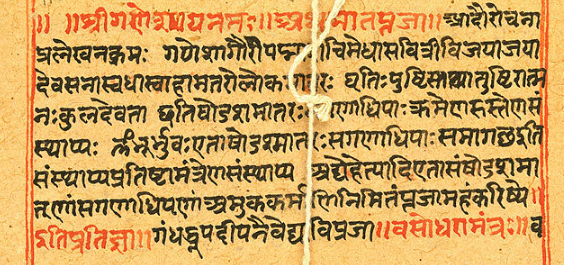 ॥ ॥श्रीगणेशायनमः॥अथमातृपूजा॥आदौरोचना
प्रलेखनक्रमः गणेशगौरीपद्मा चिमेधासावित्रीविजयाजया
देवसेनास्वधास्वाहामातरोलोकमातरः धृतिःपुष्टिस्तथातुष्टिरात्म
नःकुलदेवता इतिषोडशमातरः गणाधिपाःक्रमेणहस्तेणसं
स्थाप्यः ॐभूर्भुवःएताषोडशमातरःसगणाधिपाःसमागछइति
संस्थाप्यप्रतिष्ठामंत्रेणसंस्थाप्य अद्येहेत्यादिएतासंषोडशमा
तृणांसगणाधिपाणां अमुककर्मणिनिमितंपूजामहंकरिष्ये॥
इतिप्रतिज्ञा॥गंधधूपदीपनैवेद्यविपूजा॥वसोधारामंत्रः॥व